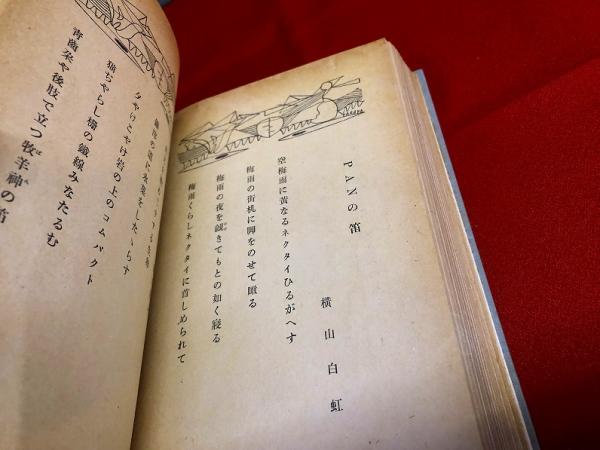 PANの笛
横山白虹
空梅雨に黄なるネクタイひるがへす
梅雨の街机に脚をのせて瞰る
梅雨の夜を戯きてもとの如く寝る
梅雨くらしネクタイに首しめられて
夕やけとやけ岩の上のコムパクト
猫ぢやらし柵の鐵線みなたるむ
青薊朶や後肢で立つ牧羊神の笛